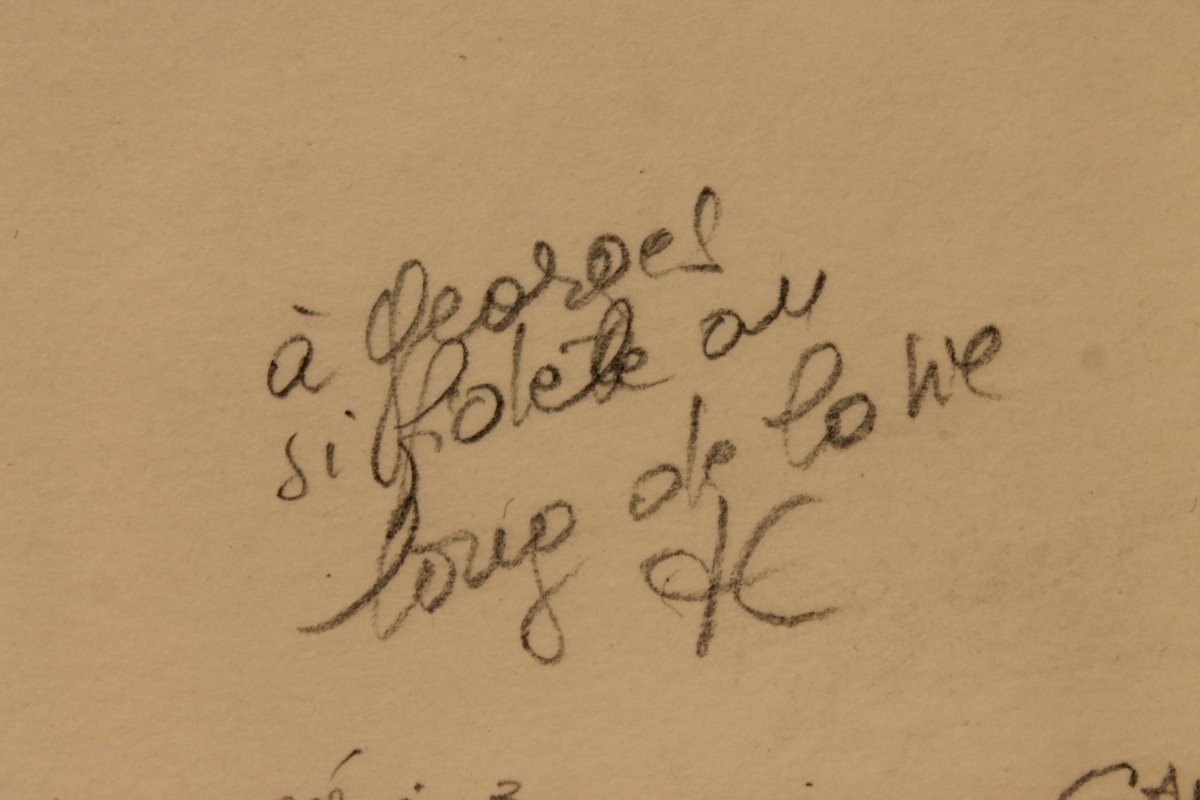 à Georges
si fidèle au
long de la vie